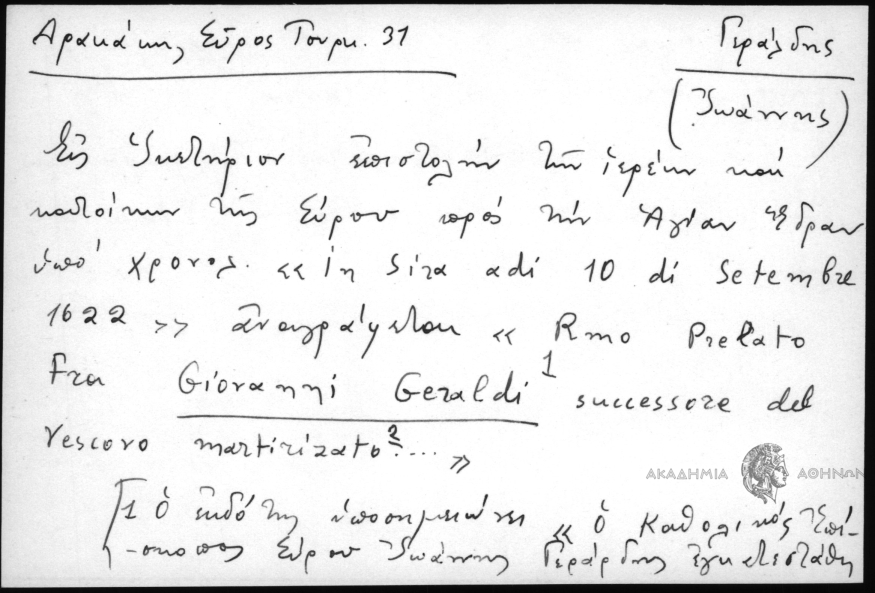 Δρακάκης Σῦρος Τουρκ. 31
Γεράλδης
(Ἰωάννης)
Εἰς Ἱκετήριον ἐπιστολήν τῶν ἱερέων καί
κατοίκων τῆς Σύρου πρός τήν Ἁγίαν Ἕδραν
ὑπό χρονολ. «in Sira adi 10 di Setembre
1622» ἀναγράφεται «Rmo Prelato
Fra Giovanni Geraldi 1 successore del
Vescovo martirizato 2 .... »
[1 Ὁ ἐκδότης ὑποσημειώνει «ὁ Καθολικός Ἐπί-
-σκοπος Σύρου Ἰωάννης Γεράρδης ἐγκατεστάθη
ΑΚΑΔΗΜΙΑ ΑΘΗΝΩΝ